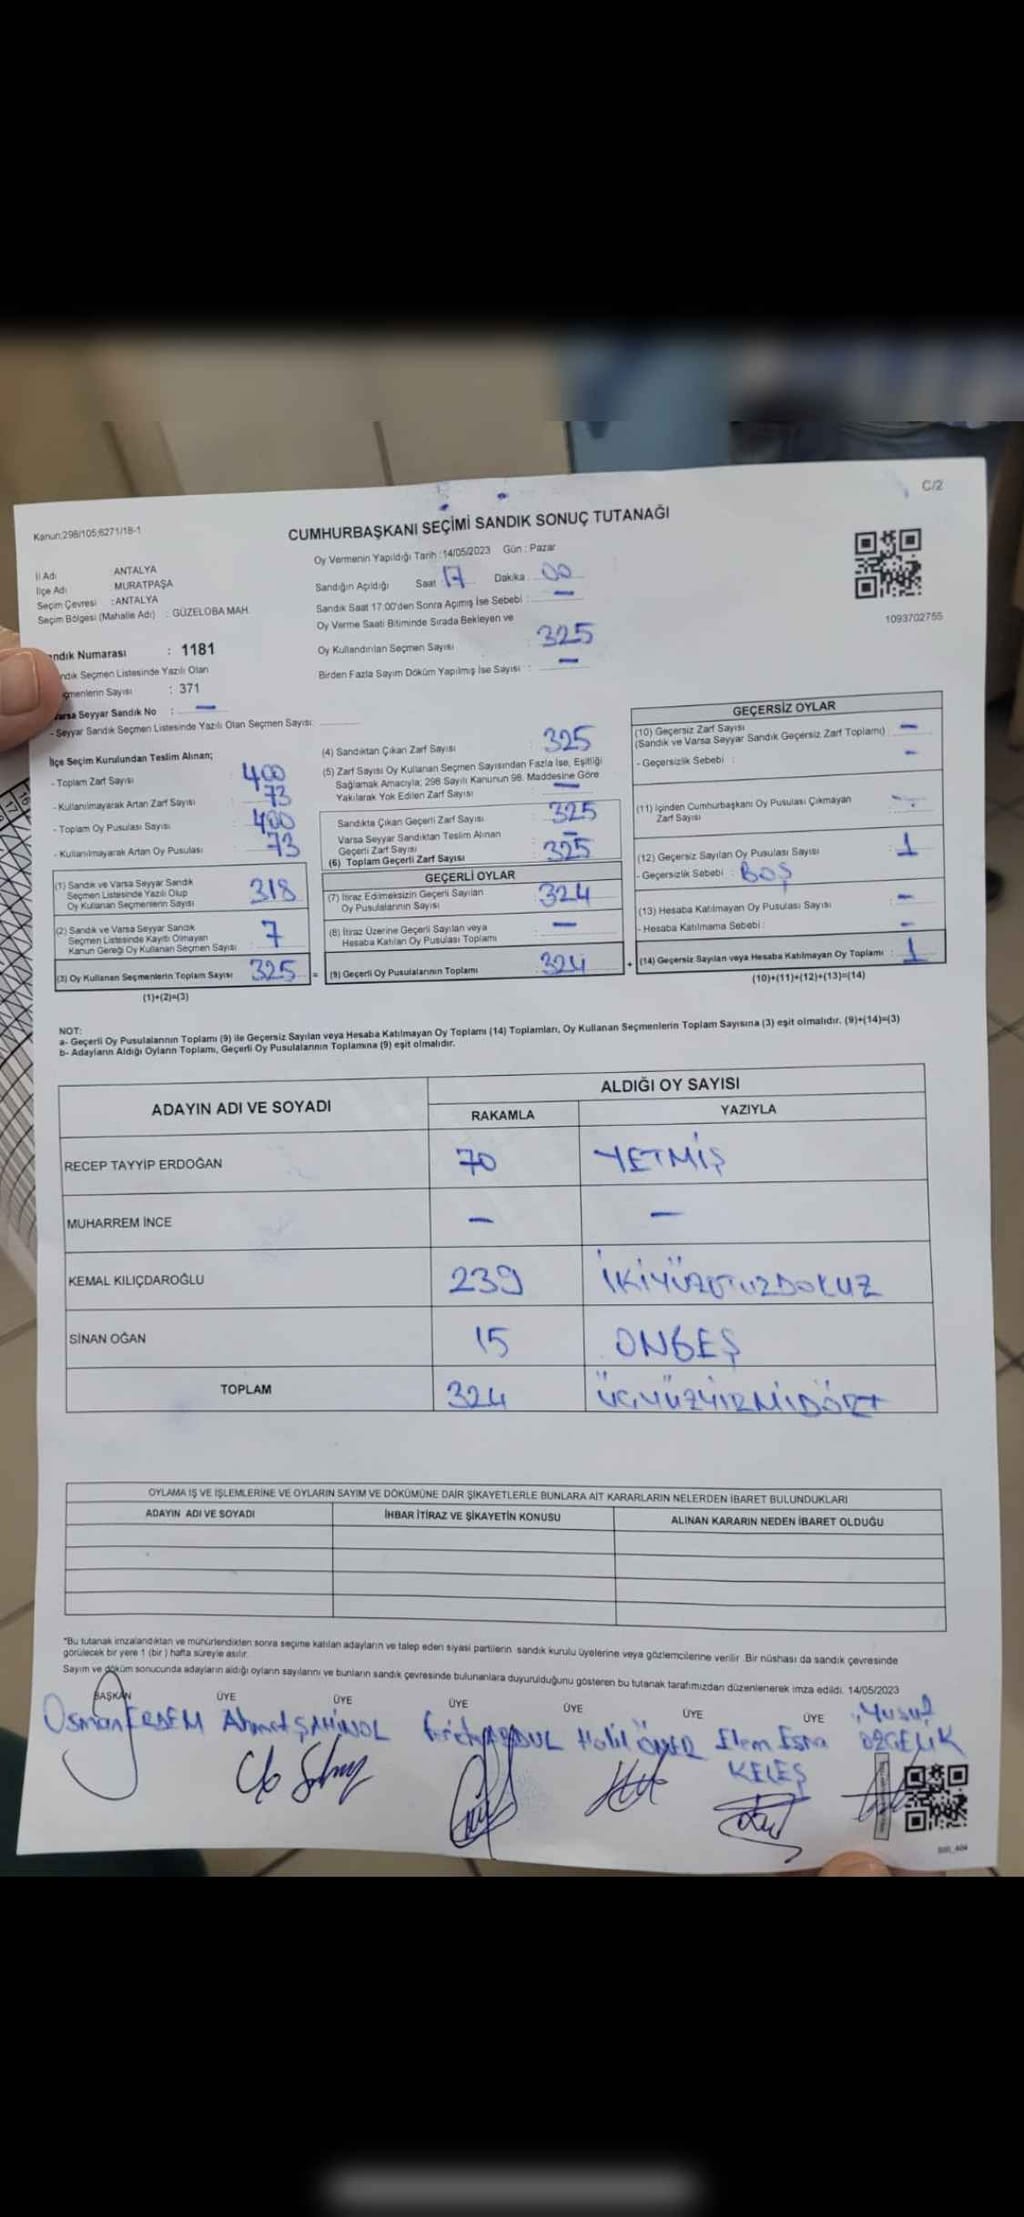 C/2
Kanun;298/105;6271/18-1
CUMHURBAŞKANI SEÇİMİ SANDIK SONUÇ TUTANAĞI
İl Adı : ANTALYA
İlçe Adı : MURATPAŞA
Seçim Çevresi : ANTALYA
Seçim Bölgesi (Mahalle Adı) : GÜZELOBA MAH.
ndık Numarası : 1181
ndık Seçmen Listesinde Yazılı Olan
çmenlerin Sayısı : 371
Varsa Seyyar Sandık No : -
- Seyyar Sandık Seçmen Listesinde Yazılı Olan Seçmen Sayısı:
Oy Vermenin Yapıldığı Tarih : 14/05/2023 Gün : Pazar
Sandığın Açıldığı Saat 17 Dakika : 00
Sandık Saat 17:00'den Sonra Açımış İse Sebebi : -
Oy Verme Saati Bitiminde Sırada Bekleyen ve
Oy Kullandırılan Seçmen Sayısı : 325
Birden Fazla Sayım Döküm Yapılmış İse Sayısı : -
1093702755
İlçe Seçim Kurulundan Teslim Alınan;
- Toplam Zarf Sayısı : 400
- Kullanılmayarak Artan Zarf Sayısı : 73
- Toplam Oy Pusulası Sayısı : 400
- Kullanılmayarak Artan Oy Pusulası : 73
(1) Sandık ve Varsa Seyyar Sandık
Seçmen Listesinde Yazılı Olup
Oy Kullanan Seçmenlerin Sayısı 318
(2) Sandık ve Varsa Seyyar Sandık
Seçmen Listesinde Kayıtlı Olmayan
Kanun Gereği Oy Kullanan Seçmen Sayısı 7
(3) Oy Kullanan Seçmenlerin Toplam Sayısı 325 =
(1)+(2)=(3)
(4) Sandıktan Çıkan Zarf Sayısı : 325
(5) Zarf Sayısı Oy Kullanan Seçmen Sayısından Fazla İse, Eşitliği
Sağlamak Amacıyla; 298 Sayılı Kanunun 98. Maddesine Göre
Yakılarak Yok Edilen Zarf Sayısı : -
Sandıkta Çıkan Geçerli Zarf Sayısı : 325
Varsa Seyyar Sandıktan Teslim Alınan
Geçerli Zarf Sayısı : -
(6) Toplam Geçerli Zarf Sayısı : 325
GEÇERLİ OYLAR
(7) İtiraz Edimeksizin Geçerli Sayılan
Oy Pusulalarının Sayısı : 324
(8) İtiraz Üzerine Geçerli Sayılan veya
Hesaba Katılan Oy Pusulası Toplamı : -
(9) Geçerli Oy Pusulalarının Toplamı : 324 +
GEÇERSİZ OYLAR
(10) Geçersiz Zarf Sayısı
(Sandık ve Varsa Seyyar Sandık Geçersiz Zarf Toplamı) : -
- Geçersizlik Sebebi : -
(11) İçinden Cumhurbaşkanı Oy Pusulası Çıkmayan
Zarf Sayısı : -
(12) Geçersiz Sayılan Oy Pusulası Sayısı : 1
- Geçersizlik Sebebi : BOŞ
(13) Hesaba Katılmayan Oy Pusulası Sayısı : -
- Hesaba Katılmama Sebebi : -
(14) Geçersiz Sayılan veya Hesaba Katılmayan Oy Toplamı : 1
(10)+(11)+(12)+(13)=(14)
NOT:
a- Geçerli Oy Pusulalarının Toplamı (9) ile Geçersiz Sayılan veya Hesaba Katılmayan Oy Toplamı (14) Toplamları, Oy Kullanan Seçmenlerin Toplam Sayısına (3) eşit olmalıdır. (9)+(14)=(3)
b- Adayların Aldığı Oyların Toplamı, Geçerli Oy Pusulalarının Toplamına (9) eşit olmalıdır.
ADAYIN ADI VE SOYADI ALDIĞI OY SAYISI
RAKAMLA YAZIYLA
RECEP TAYYİP ERDOĞAN 70 YETMİŞ
MUHARREM İNCE - -
KEMAL KILIÇDAROĞLU 239 İKİYÜZOTUZDOKUZ
SİNAN OĞAN 15 ONBEŞ
TOPLAM 324 ÜÇYÜZYİRMİDÖRT
OYLAMA İŞ VE İŞLEMLERİNE VE OYLARIN SAYIM VE DÖKÜMÜNE DAİR ŞİKAYETLERLE BUNLARA AİT KARARLARIN NELERDEN İBARET BULUNDUKLARI
ADAYIN ADI VE SOYADI İHBAR İTİRAZ VE ŞİKAYETİN KONUSU ALINAN KARARIN NEDEN İBARET OLDUĞU
*Bu tutanak imzalandıktan ve mühürlendikten sonra seçime katılan adayların ve talep eden siyasi partilerin sandık kurulu üyelerine veya gözlemcilerine verilir. Bir nüshası da sandık çevresinde
görülecek bir yere 1 (bir) hafta süreyle asılır.
Sayım ve döküm sonucunda adayların aldığı oyların sayılarını ve bunların sandık çevresinde bulunanlara duyurulduğunu gösteren bu tutanak tarafımızdan düzenlenerek imza edildi. 14/05/2023
BAŞKAN ÜYE ÜYE ÜYE ÜYE ÜYE ÜYE
Osman ERDEM Ahmet ŞAHİNOL Halil ÖMER Elem Esra KELEŞ Yusuf ÖZÇELİK